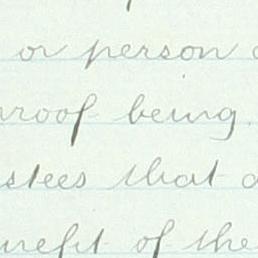 or person
proof being
stees that
nefit of the